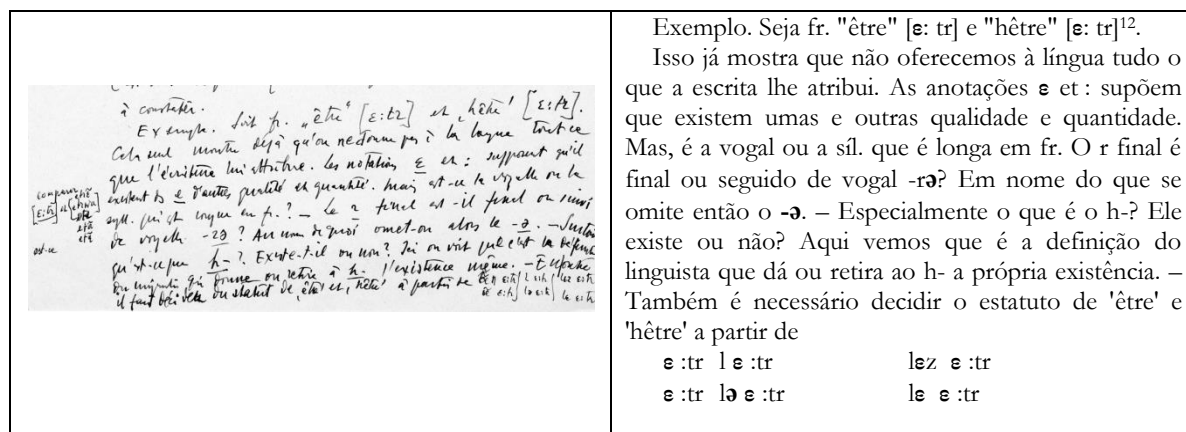 à constater.
Exemple. Soit fr. „être‘ [ɛ:tr] et „hêtre‘ [ɛ:tr].
Cela seul montre déjà qu'on ne donne pas à la langue tout ce
que l'écriture lui attribue. Les notations ɛ et : supposent qu'il
existent des e d'autres qualité et quantité. Mais est-ce la voyelle ou la
syll. qui est longue en fr.? – Le r final est-il final ou suivi
de voyelle -rə? Au nom de quoi omet-on alors le -ə. – Surtout
qu'est-ce que h-? Existe-t-il ou non? Ici on voit que c'est la
du linguiste qui donne ou retire à h- l'existence même. –
il faut décider du statut de „être‘ et „hêtre‘ à partir de
Exemplo. Seja fr. "être" [ɛ: tr] e "hêtre" [ɛ: tr]¹².
Isso já mostra que não oferecemos à língua tudo o
que a escrita lhe atribui. As anotações ɛ et : supõem
que existem umas e outras qualidade e quantidade.
Mas, é a vogal ou a síl. que é longa em fr. O r final é
final ou seguido de vogal -rə? Em nome do que se
omite então o -ə. – Especialmente o que é o h-? Ele
existe ou não? Aqui vemos que é a definição do
linguista que dá ou retira ao h- a própria existência. –
Também é necessário decidir o estatuto de 'être' e
'hêtre' a partir de
ɛ :tr l ɛ :tr lɛz ɛ :tr
ɛ :tr lə ɛ :tr lɛ ɛ :tr